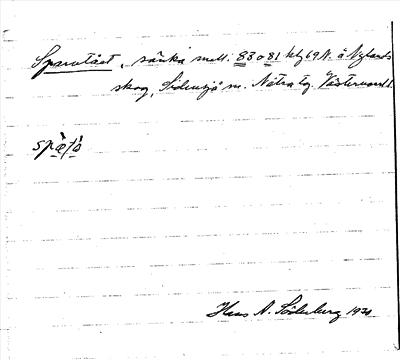 Sparvtået, sänka mell. 83 o 81 kbl 69 N. å Nylands
skog, Sidensjö sn. Nätra tg. Västernorrl.
spàtå
Hans A. Söderberg 1931